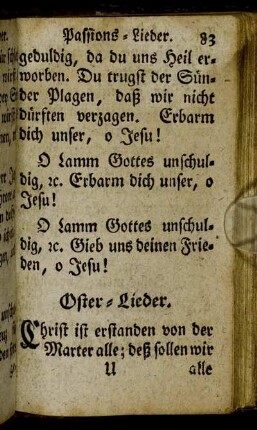 Passions-Lieder. 83
geduldig, da du uns Heil er-
worben. Du trugst der Sün-
der Plagen, daß wir nicht
dürften verzagen. Erbarm
dich unser, o Jesu!
O Lamm Gottes unschul-
dig, ꝛc. Erbarm dich unser, o
Jesu!
O Lamm Gottes unschul-
dig, ꝛc. Gieb uns deinen Frie-
den, o Jesu!
Oster-Lieder.
Christ ist erstanden von der
Marter alle; deß sollen wir
U alle